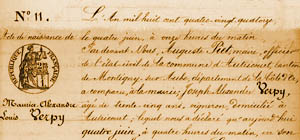 N° 11.
L'An mil huit cent quatre-vingt quatorze
Acte de naissance de
le quatre juin, à onze heures du matin
Pardevant Nous, Auguste Piet, maire, officier
de l'état civil de la commune d'Autricourt, canton
de Montigny-sur-Aube, département de la Côte d'Or
a comparu, à la mairie, Joseph Alexandre Verpy,
Maurice Alexandre
âgé de trente cinq ans, vigneron, domicilié à
Louis Verpy
Autricourt, lequel nous a déclaré qu'aujourd'hui
quatre juin, à quatre heures du matin, en son